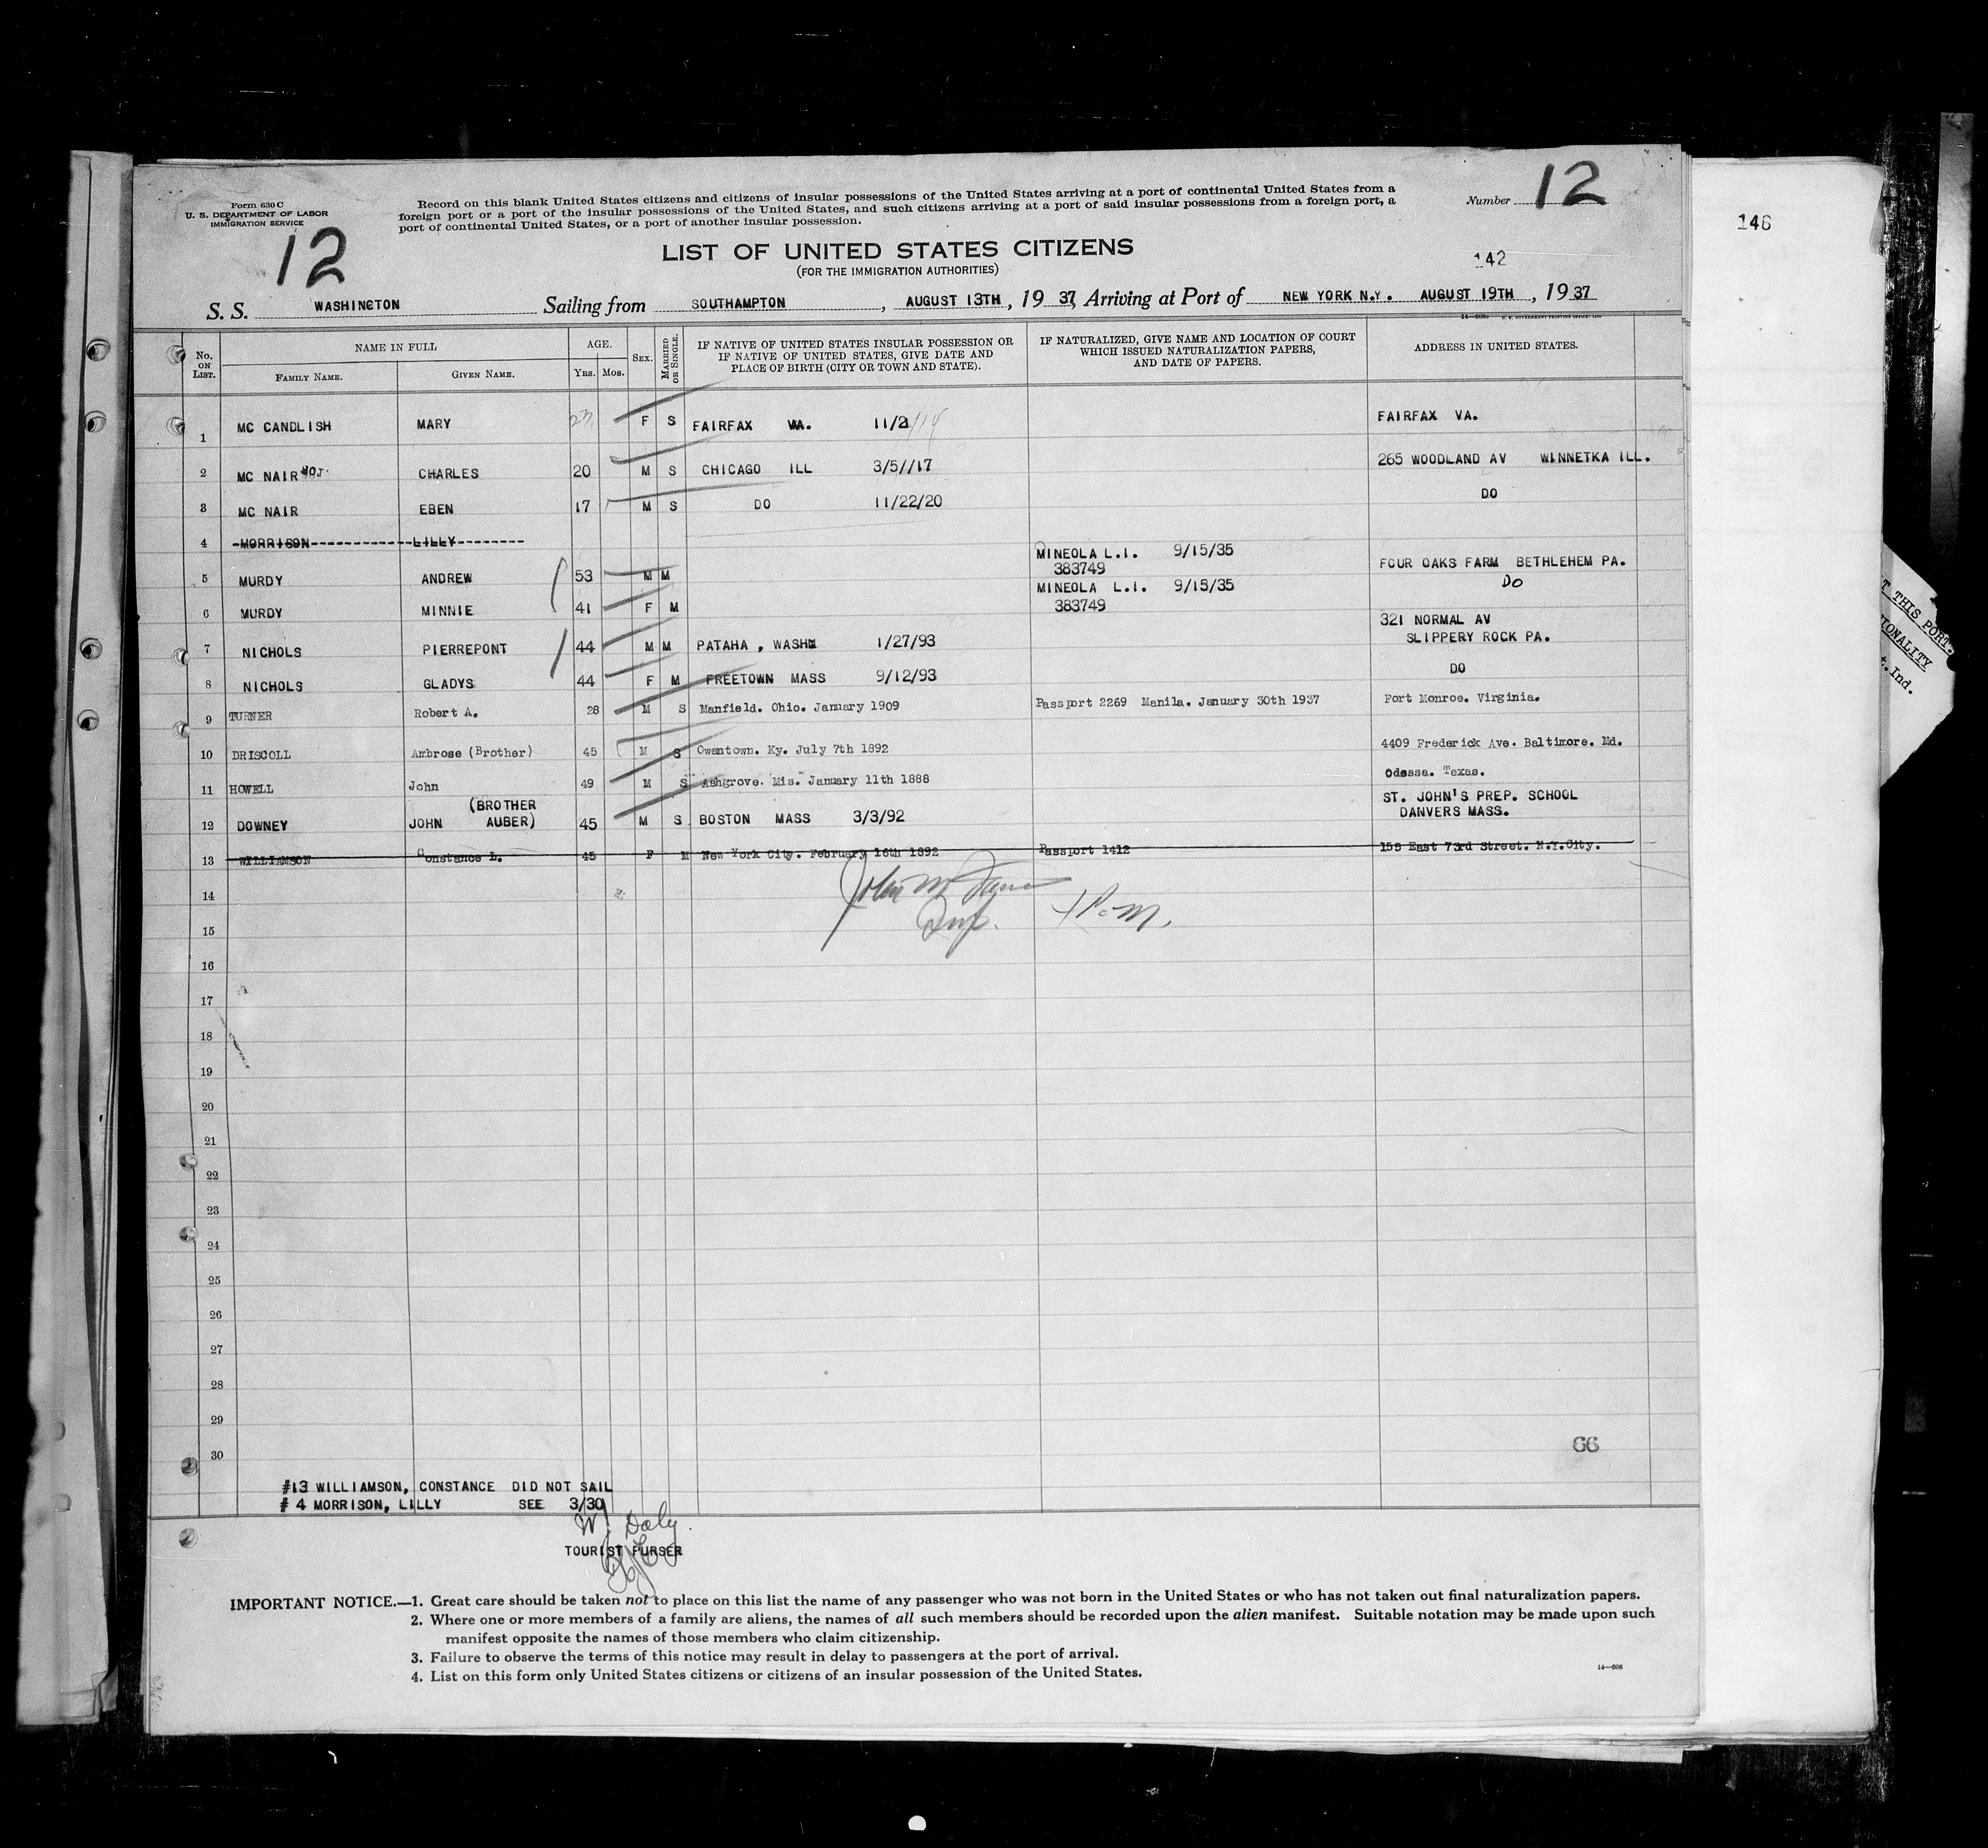 Form 630 C
U. S. DEPARTMENT OF LABOR
IMMIGRATION SERVICE
12
Record on this blank United States citizens and citizens of insular possessions of the United States arriving at a port of continental United States from a
foreign port or a port of the insular possessions of the United States, and such citizens arriving at a port of said insular possessions from a foreign port, a
port of continental United States, or a port of another insular possession.
Number 12
146
LIST OF UNITED STATES CITIZENS
(FOR THE IMMIGRATION AUTHORITIES)
142
S. S. WASHINGTON Sailing from SOUTHAMPTON, AUGUST 13TH, 19 37, Arriving at Port of NEW YORK N.Y. AUGUST 19TH, 19 37
No. ON LIST.
NAME IN FULL
FAMILY NAME.
GIVEN NAME.
AGE.
YRS. MOS.
SEX.
MARRIED OR SINGLE.
IF NATIVE OF UNITED STATES INSULAR POSSESSION OR
IF NATIVE OF UNITED STATES, GIVE DATE AND
PLACE OF BIRTH (CITY OR TOWN AND STATE).
IF NATURALIZED, GIVE NAME AND LOCATION OF COURT
WHICH ISSUED NATURALIZATION PAPERS,
AND DATE OF PAPERS.
ADDRESS IN UNITED STATES.
1 MC CANDLISH MARY 23 F S FAIRFAX VA. 11/2/14 FAIRFAX VA.
2 MC NAIR CHARLES 20 M S CHICAGO ILL 3/5//17 265 WOODLAND AV WINNETKA ILL.
3 MC NAIR EBEN 17 M S DO 11/22/20 DO
4 MORRISON LILLY
5 MURDY ANDREW 53 M M MINEOLA L.I. 9/15/35 383749 FOUR OAKS FARM BETHLEHEM PA.
6 MURDY MINNIE 41 F M MINEOLA L.I. 9/15/35 383749 DO
7 NICHOLS PIERREPONT 44 M M PATAHA , WASH 1/27/93 321 NORMAL AV SLIPPERY ROCK PA.
8 NICHOLS GLADYS 44 F M FREETOWN MASS 9/12/93 DO
9 TURNER Robert A. 28 M S Manfield. Ohio. January 1909 Passport 2269 Manila. January 30th 1937 Fort Monroe. Virginia.
10 DRISCOLL Ambrose (Brother) 45 M S Owentown. Ky. July 7th 1892 4409 Frederick Ave. Baltimore. Md.
11 HOWELL John 49 M S Ashgrove. Mis. January 11th 1888 Odessa. Texas.
12 DOWNEY JOHN (BROTHER AUBER) 45 M S BOSTON MASS 3/3/92 ST. JOHN'S PREP. SCHOOL DANVERS MASS.
13 WILLIAMSON Constance L. 45 F M New York City. February 16th 1892 Passport 1412 155 East 73rd Street. N.Y.City.
14
15
16
17
18
19
20
21
22
23
24
25
26
27
28
29
30
66
#13 WILLIAMSON, CONSTANCE DID NOT SAIL
# 4 MORRISON, LILLY SEE 3/30
W. Daly.
TOURIST PURSER
IMPORTANT NOTICE.—1. Great care should be taken not to place on this list the name of any passenger who was not born in the United States or who has not taken out final naturalization papers.
2. Where one or more members of a family are aliens, the names of all such members should be recorded upon the alien manifest. Suitable notation may be made upon such
manifest opposite the names of those members who claim citizenship.
3. Failure to observe the terms of this notice may result in delay to passengers at the port of arrival.
4. List on this form only United States citizens or citizens of an insular possession of the United States.
14—608
T THIS PORT.
IONALITY
t.Ind.